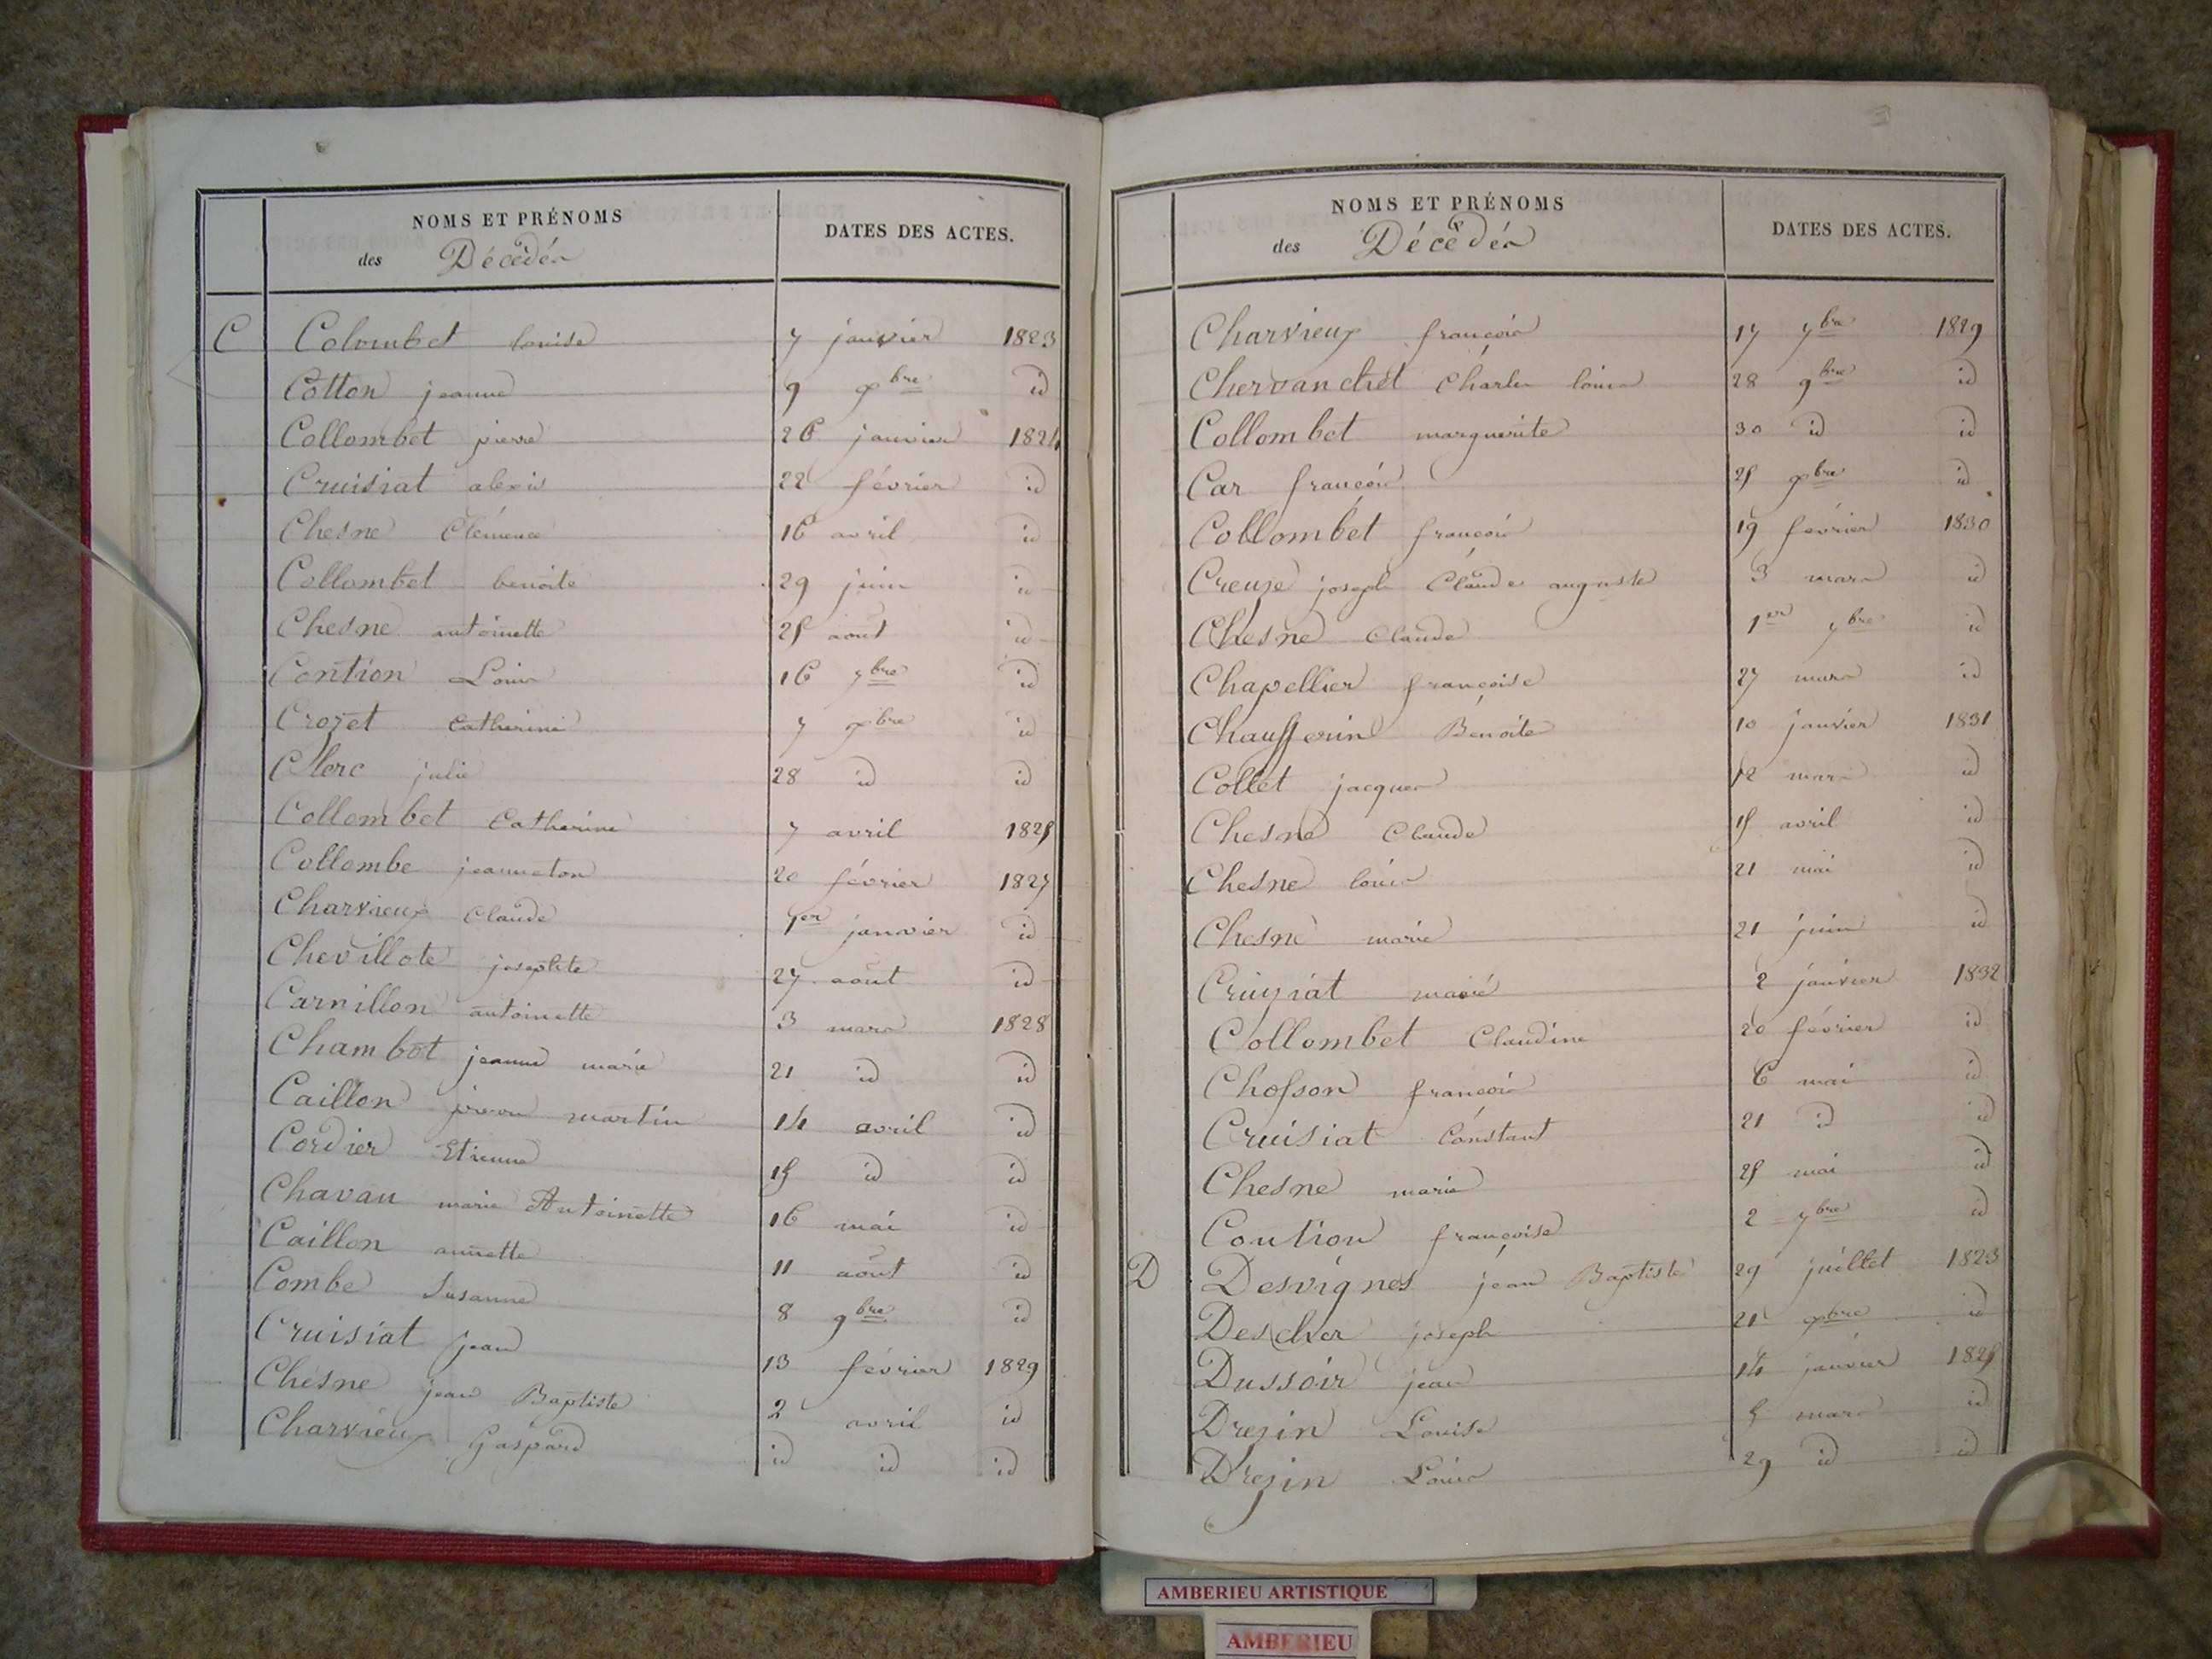 NOMS ET PRÉNOMS
des Décédés
DATES DES ACTES.
C Colombet louise 7 janvier 1823
Cotton jeanne 9 xbre id
Collombet pierre 26 janvier 1824
Cruisiat alexis 22 février id
Chesne Clémence 16 avril id
Collombet benoite 29 juin id
Chesne antoinette 25 aout id
Contion Louis 16 7bre id
Crozet Catherine 7 xbre id
Clerc julie 28 id id
Collombet Catherine 7 avril 1825
Collombe jeanneton 20 février 1827
Charvieux Claude 1er janvier id
Chevillote josephte 27 aout id
Carnillon antoinette 3 mars 1828
Chambot jeanne marie 21 id id
Caillon martin 14 avril id
Cordier Etienne 15 id id
Chavan marie Antoinette 16 mai id
Caillon annette 11 aout id
Combe Susanne 8 9bre id
Cruisiat jean 13 février 1829
Chesne jean Baptiste 2 avril id
Charvieux Gaspard id id id
NOMS ET PRÉNOMS
des Décédés
DATES DES ACTES.
Charvieux françois 17 7bre 1829
Chervanchet Charles louis 28 9bre id
Collombet marguerite 30 id id
Car françois 25 xbre id
Collombet françois 19 février 1830
Creuze joseph Claude auguste 3 mars id
Chesne Claude 1er 7bre id
Chapellier françoise 27 mars id
Chausserin Benoite 10 janvier 1831
Collet jacques 12 mars id
Chesne Claude 15 avril id
Chesne louis 21 mai id
Chesne marie 21 juin id
Cruyziat marie 2 janvier 1832
Collombet Claudine 20 février id
Chosson françois 6 mai id
Cruisiat Constant 21 id id
Chesne marie 25 mai id
Coution françoise 2 7bre id
D Desvignes jean Baptiste 29 juillet 1823
Descher joseph 21 xbre id
Dussoir jean 14 janvier 1825
Drezin Louise 5 mars id
Drezin Louis 29 id id
AMBERIEU ARTISTIQUE
AMBERIEU